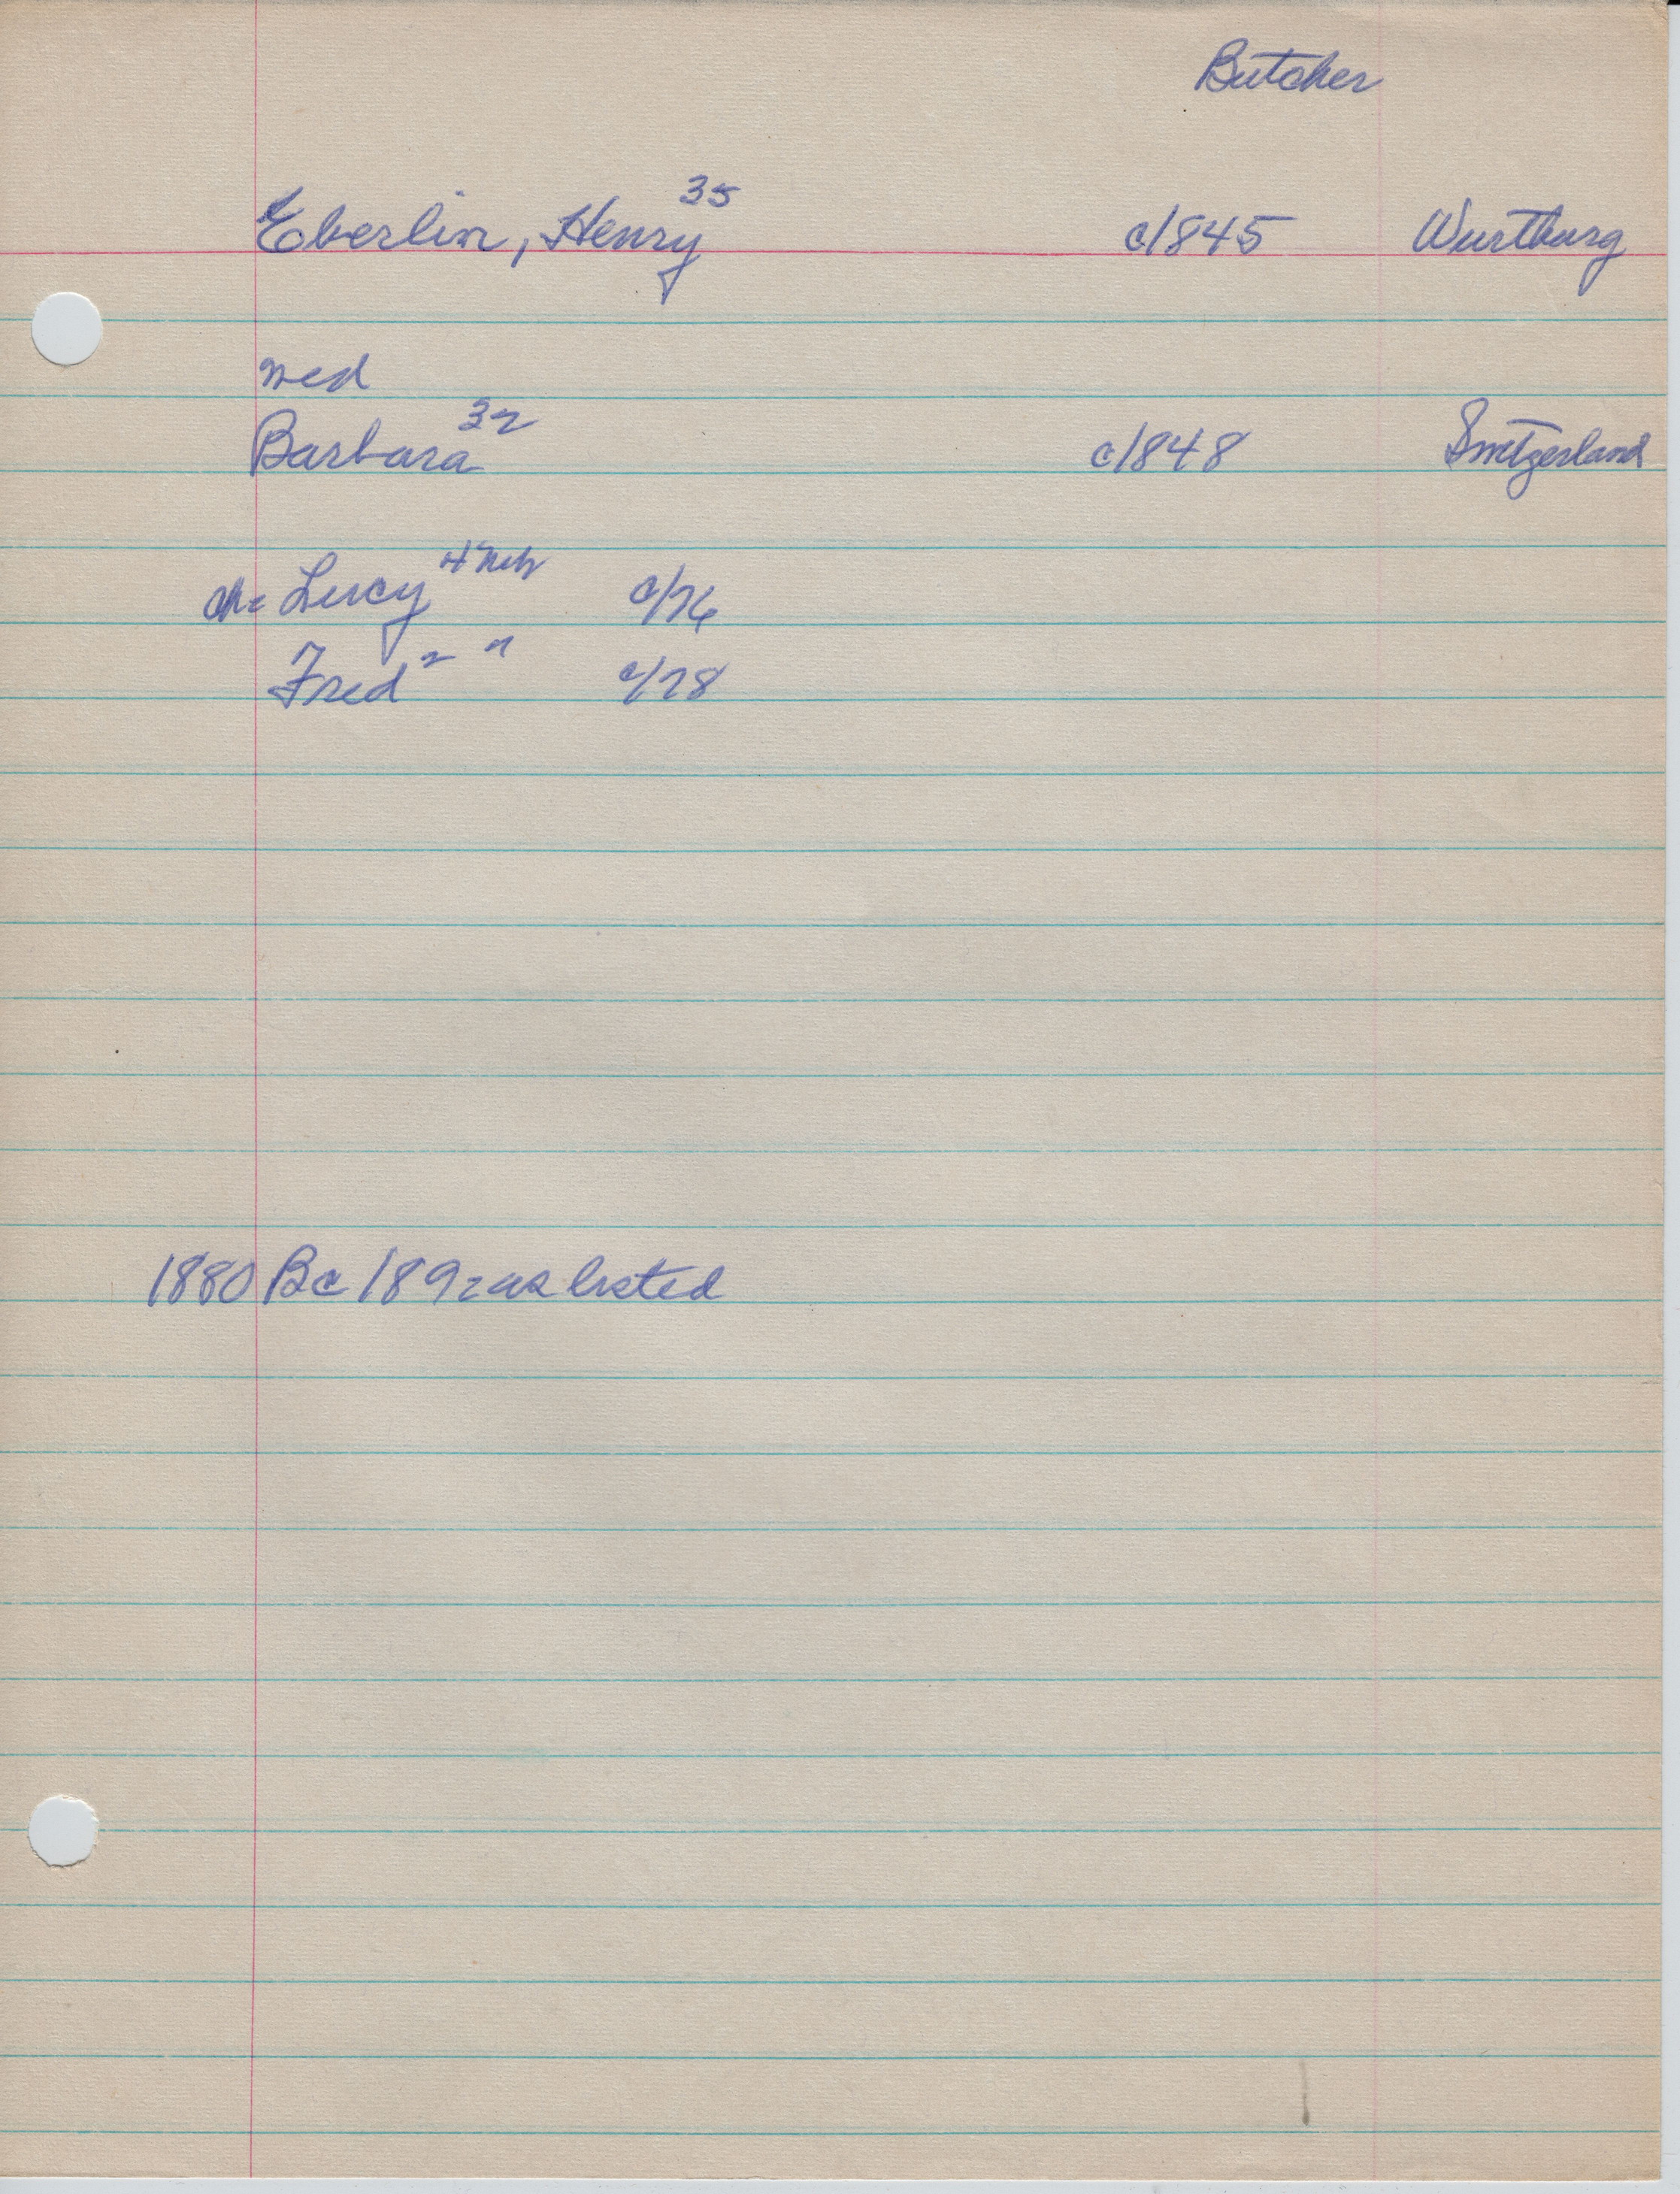 Butcher
Eberlin, Henry 35 c/1845 Wurtburg
med
Barbara 32 c/1848 Switzerland
ch= Lucy 4 Neb c/76
Fred 2 " c/78
1880 Bc 189= as listed